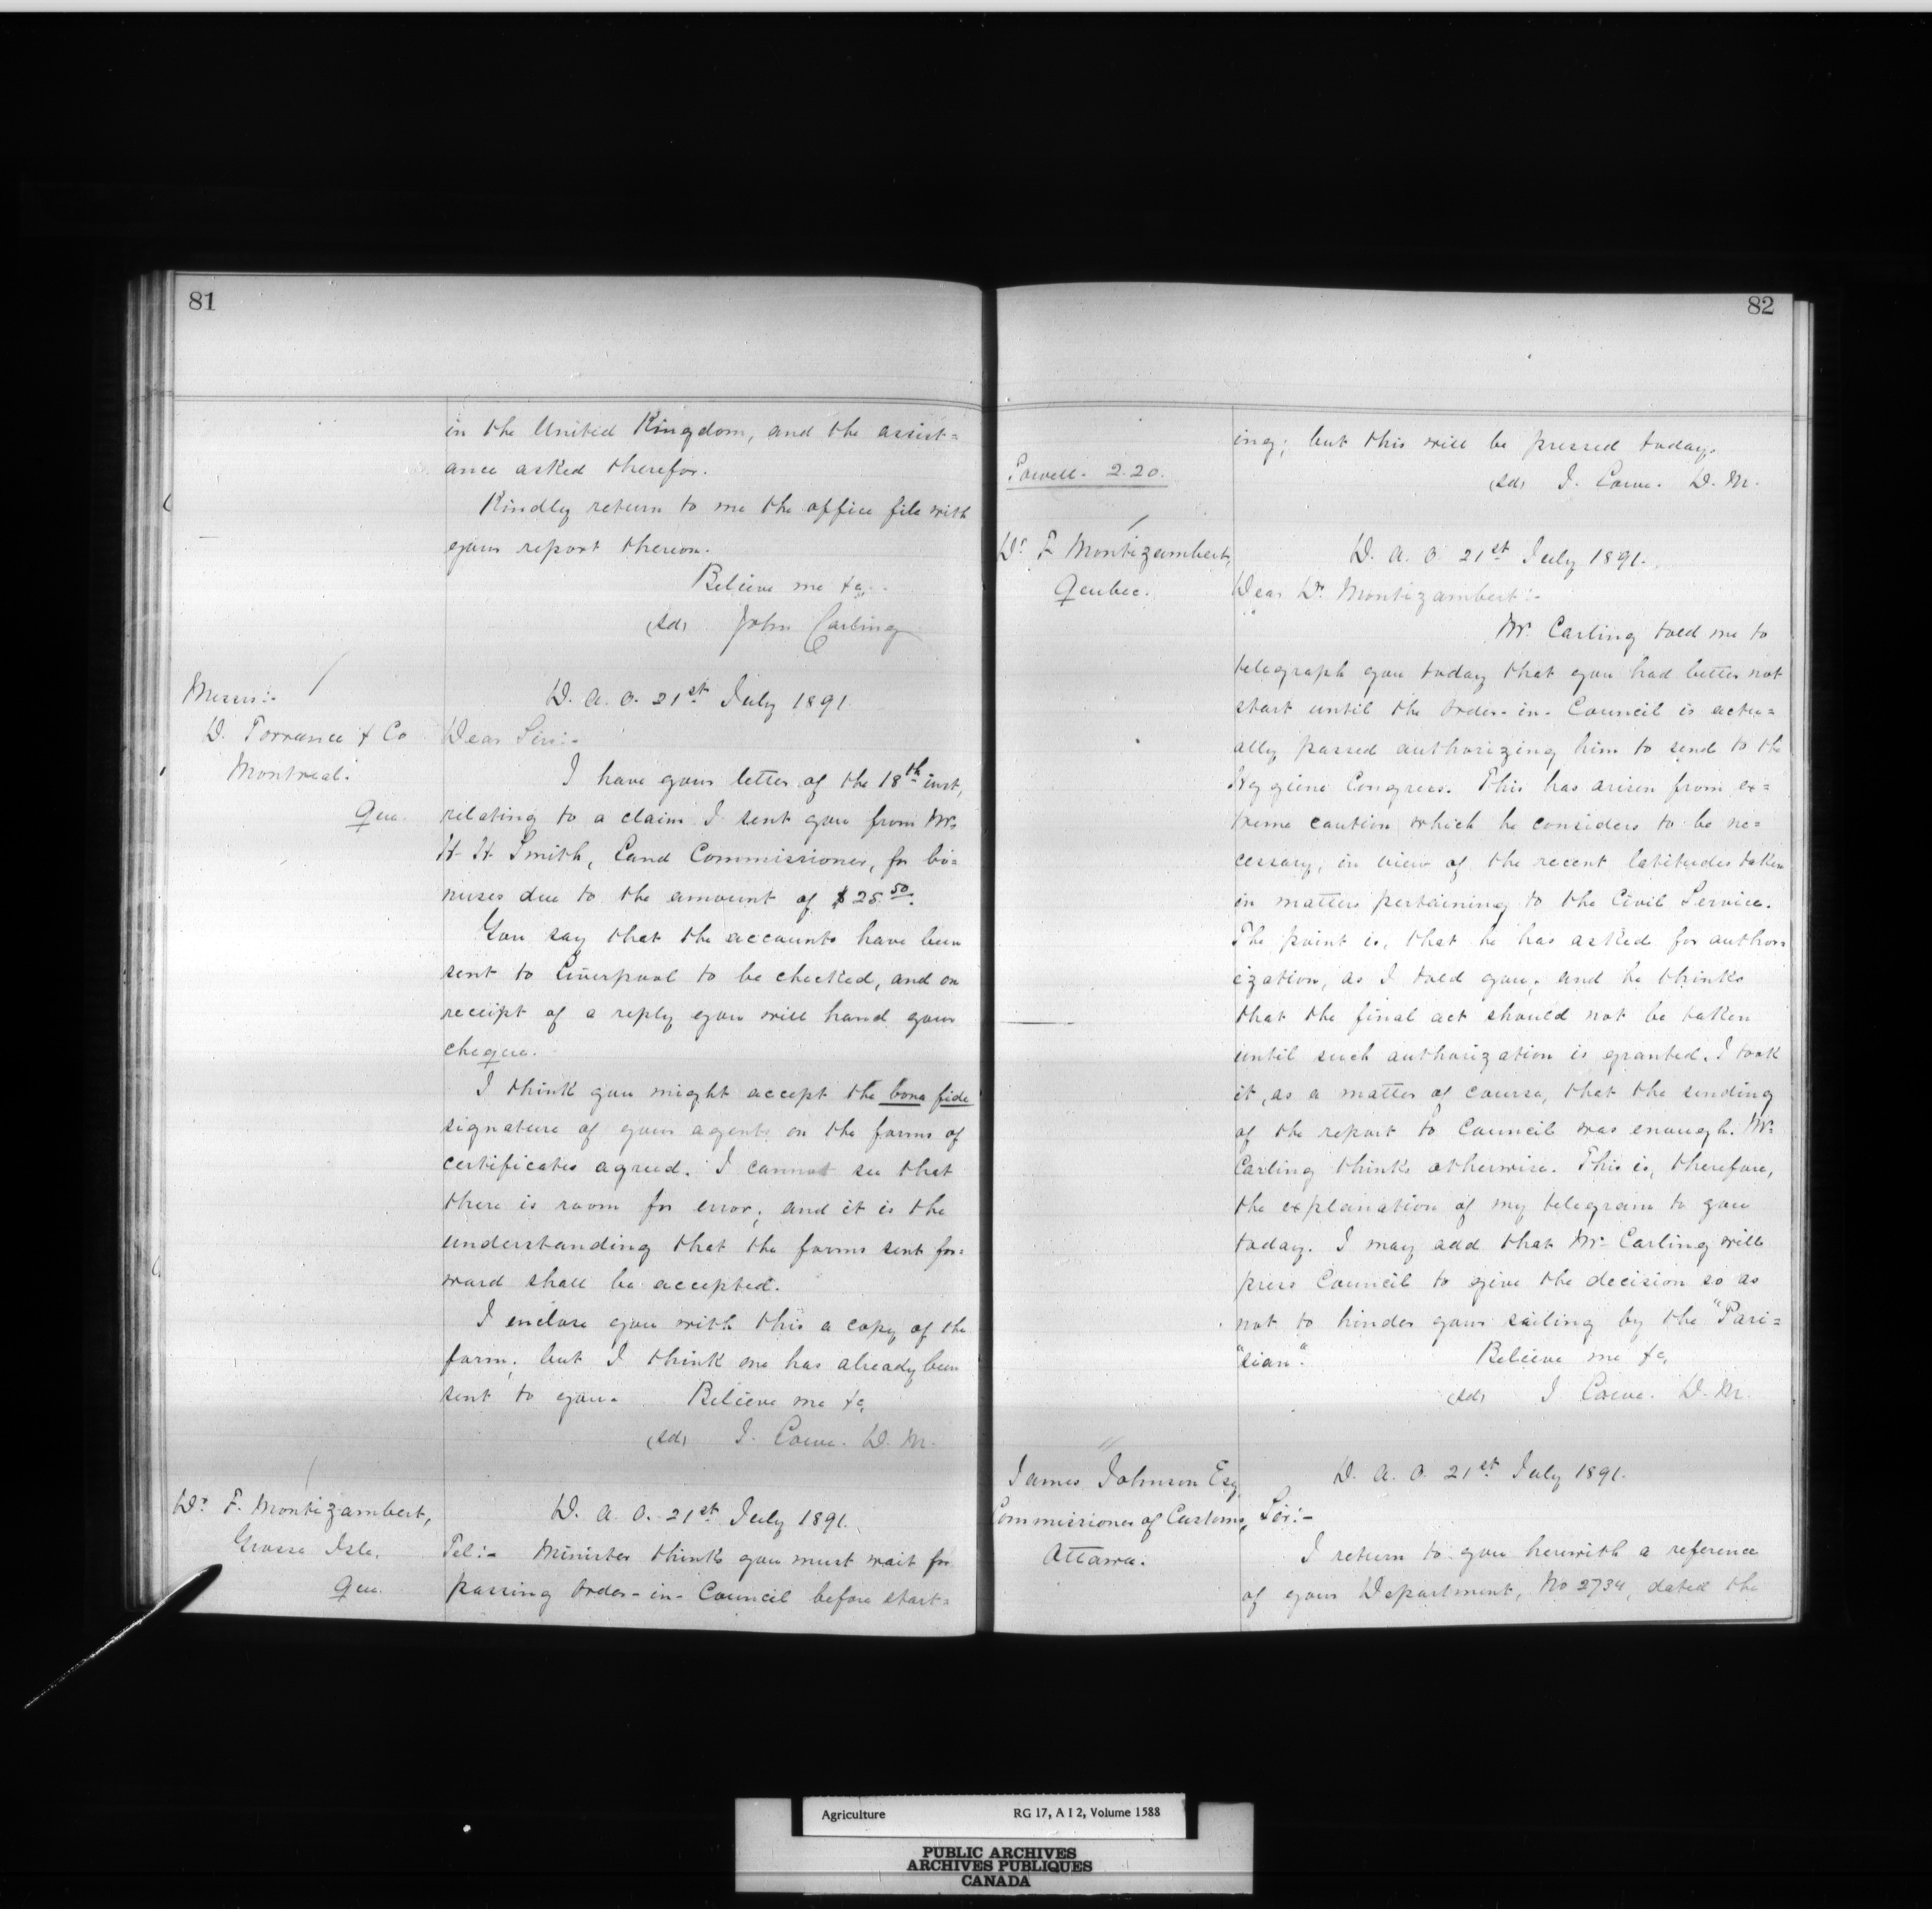 81
in the United Kingdom, and the assist=
ance asked therefor.
Kindly return to me the office file with
your report thereon.
Believe me &c.
(sd) John Carling
Messrs:-
D. Torrance & Co
Montreal.
Que.
D. A. O. 21st July 1891
Dear Sirs:-
I have your letter of the 18th inst,
relating to a claim I sent you from Mr.
H. H. Smith, Land Commissioner, for bo=
nuses due to the amount of $25.50.
You say that the accounts have been
sent to Liverpool to be checked, and on
receipt of a reply you will hand your
cheque.
I think you might accept the bona fide
signature of your agents on the forms of
certificates agreed. I cannot see that
there is room for error; and it is the
understanding that the forms sent for=
ward shall be accepted.
I enclose you with this a copy of the
form; but I think one has already been
sent to you. Believe me &c,
(sd) J. Lowe. D. M.
Dr. F. Montizambert,
Grosse Isle.
Que.
D. A. O. 21st July 1891.
Tel:- Minister thinks you must wait for
passing Order-in-Council before start=
82
ing; but this will be pressed today.
(sd) J. Lowe. D. M.
Powell. 2.20.
Dr. F Montizambert,
Qeubec.
D. A. O 21st July 1891.
Dear Dr. Montizambert:-
Mr. Carling told me to
telegraph you today that you had better not
start until the Order-in-Council is actu=
ally passed authorizing him to send to the
Hygiene Congress. This has arisen from ex=
treme caution which he considers to be ne=
cessary, in view of the recent latitudes taken
in matters pertaining to the Civil Service.
The point is, that he has asked for author=
ization, as I told you, and he thinks
that the final act should not be taken
until such authorization is granted. I took
it, as a matter of course, that the sending
of the report to Council was enough. Mr.
Carling thinks otherwise. This is, therefore,
the explanation of my telegram to you
today. I may add that Mr. Carling will
press Council to give the decision so as
not to hinder your sailing by the "Pari=
"sian". Believe me &c,
(sd) J Lowe. D. M.
James Johnson Esq,
Commissioner of Customs,
Ottawa.
D. A. O. 21st July 1891.
Sir:-
I return to you herewith a reference
of your Department, No 2734, dated the
Agriculture RG 17, A I 2, Volume 1588
PUBLIC ARCHIVES
ARCHIVES PUBLIQUES
CANADA